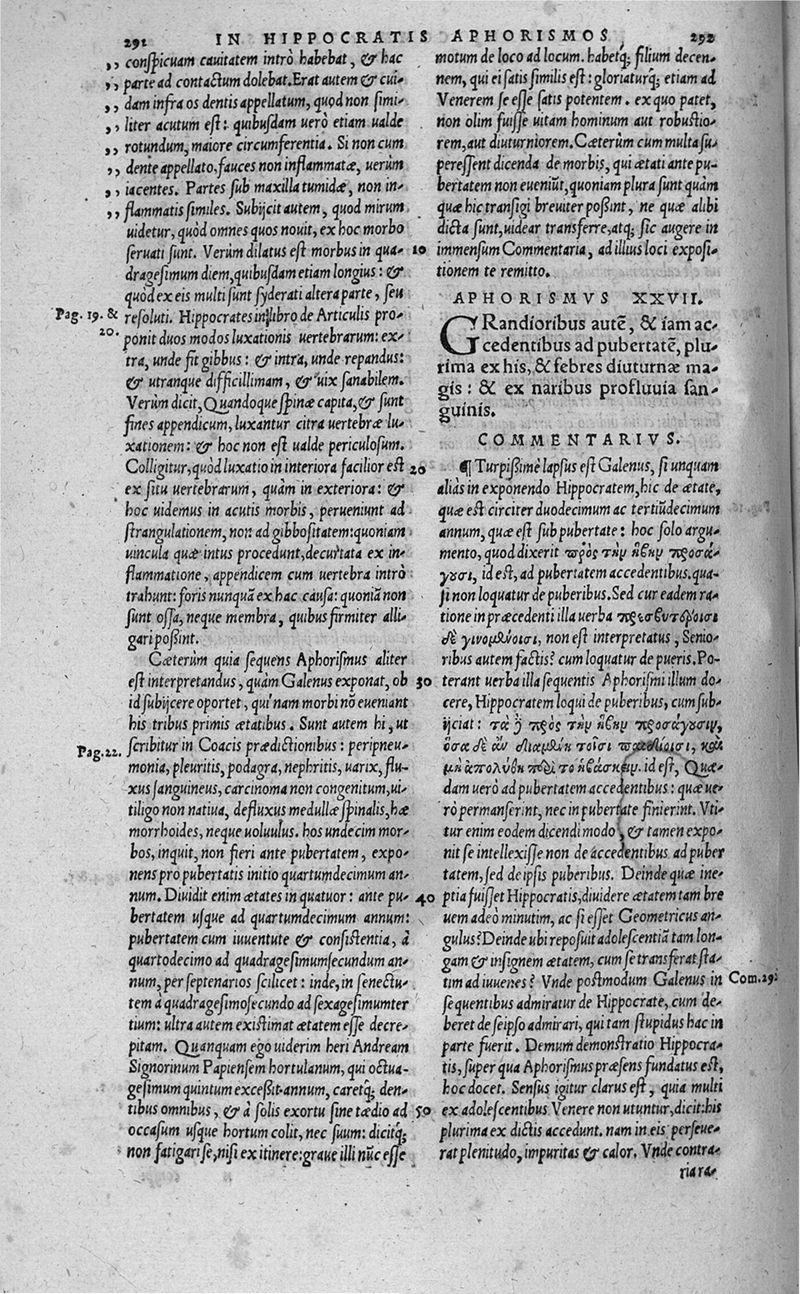 291 IN HIPPOCRATIS APHORISMOS 292
,, conspicuam cauitatem intrò habebat, & hac
,, parte ad contactum dolebat. Erat autem & cui-
,, dam infra os dentis appellatum, quod non simi-
,, liter acutum est: quibusdam uerò etiam ualde
,, rotundum, maiore circumferentia. Si non cum
,, dente appellato, fauces non inflammatæ, uerùm
,, iacentes. Partes sub maxilla tumidæ, non in-
,, flammatis similes. Subijcit autem, quod mirum
uidetur, quòd omnes quos nouit, ex hoc morbo
seruati sunt. Verùm dilatus est morbus in qua- 10
dragesimum diem, quibusdam etiam longius: &
quòd ex eis multi sunt syderati altera parte, seu
Pag. 19. & resoluti. Hippocrates in libro de Articulis pro-
20. ponit duos modos luxationis uertebrarum: ex-
tra, unde fit gibbus: & intra, unde repandus:
& utranque difficillimam, & uix sanabilem.
Verùm dicit, Quandoque spinæ capita, & sunt
fines appendicum, luxantur citra uertebræ lu-
xationem: & hoc non est ualde periculosum.
Colligitur, quòd luxatio in interiora facilior est 20
ex situ uertebrarum, quàm in exteriora: &
hoc uidemus in acutis morbis, perueniunt ad
strangulationem, non ad gibbositatem: quoniam
uincula quæ intus procedunt, decurtata ex in-
flammatione, appendicem cum uertebra intrò
trahunt: foris nunquã ex hac causa: quoniã non
sunt ossa, neque membra, quibus firmiter alli-
gari possint.
Cæterùm quia sequens Aphorismus aliter
est interpretandus, quàm Galenus exponat, ob 30
id subijcere oportet, qui nam morbi nõ eueniant
his tribus primis ætatibus. Sunt autem hi, ut
Pag. 22. scribitur in Coacis prædictionibus: peripneu-
monia, pleuritis, podagra, nephritis, uarix, flu-
xus sanguineus, carcinoma non congenitum, ui-
tiligo non natiua, defluxus medullæ spinalis, hæ
morrhoides, neque uoluulus. hos undecim mor-
bos, inquit, non fieri ante pubertatem, expo-
nens pro pubertatis initio quartumdecimum an-
num. Diuidit enim ætates in quatuor: ante pu- 40
bertatem usque ad quartumdecimum annum:
pubertatem cum iuuentute & consistentia, à
quartodecimo ad quadragesimumsecundum an-
num, per septenarios scilicet: inde, in senectu-
tem à quadragesimosecundo ad sexagesimumter
tium: ultra autem existimat ætatem esse decre-
pitam. Quanquam ego uiderim heri Andream
Signorinum Papiensem hortulanum, qui octua-
gesimum quintum excessit annum, caretq; den-
tibus omnibus, & à solis exortu sine tædio ad 50
occasum usque hortum colit, nec suum: dicitq;
non fatigari se, nisi ex itinere: graue illi nũc esse
motum de loco ad locum. habetq; filium decen-
nem, qui ei satis similis est: gloriaturq; etiam ad
Venerem se esse satis potentem. ex quo patet,
non olim fuisse uitam hominum aut robustio-
rem, aut diuturniorem. Cæterùm cum multa su-
peressent dicenda de morbis, qui ætati ante pu-
bertatem non eueniũt, quoniam plura sunt quàm
quæ hic transigi breuiter possint, ne quæ alibi
dicta sunt, uidear transferre, atq; sic augere in
immensum Commentaria, ad illius loci exposi-
tionem te remitto.
APHORISMVS XXVII.
GRandioribus autẽ, & iam ac-
cedentibus ad pubertatẽ, plu-
rima ex his, & febres diuturnæ ma-
gis: & ex naribus profluuia san-
guinis.
COMMENTARIVS.
¶ Turpissimè lapsus est Galenus, si unquam
aliàs in exponendo Hippocratem, hic de ætate,
quæ est circiter duodecimum ac tertiũdecimum
annum, quæ est sub pubertate: hoc solo argu-
mento, quod dixerit πρὸς τὴν ἥβην προσά-
γουσι, id est, ad pubertatem accedentibus. qua-
si non loquatur de puberibus. Sed cur eadem ra-
tione in præcedenti illa uerba πρεσβυτέροισι
δὲ γινομένοισι, non est interpretatus, Senio-
ribus autem factis? cum loquatur de pueris. Po-
terant uerba illa sequentis Aphorismi illum do-
cere, Hippocratem loqui de puberibus, cum sub-
ijciat: τὰ ἢ πρὸς τὴν ἥβην προσάγουσιν,
ὅσα δὲ ἂν διαμείνῃ τοῖσι παιδίοισι, καὶ
μὴ ἀπολυθῇ περὶ τὸ ἡβάσκειν. id est, Quæ-
dam uerò ad pubertatem accedentibus: quæ ue-
rò permanserint, nec in pubertate finierint. Vti-
tur enim eodem dicendi modo, & tamen expo-
nit se intellexisse non de accedentibus ad puber
tatem, sed de ipsis puberibus. Deinde quæ ine-
ptia fuisset Hippocratis, diuidere ætatem tam bre
uem adeò minutim, ac si esset Geometricus an-
gulus? Deinde ubi reposuit adolescentiã tam lon-
gam & insignem ætatem, cum se transferat sta-
tim ad iuuenes? Vnde postmodum Galenus in Com. 29.
sequentibus admiratur de Hippocrate, cum de-
beret de seipso admirari, qui tam stupidus hac in
parte fuerit. Demum demonstratio Hippocra-
tis, super qua Aphorismus præsens fundatus est,
hoc docet. Sensus igitur clarus est, quia multi
ex adolescentibus Venere non utuntur, dicit: his
plurima ex dictis accedunt. nam in eis perseue-
rat plenitudo, impuritas & calor. Vnde contra-
ria ra-